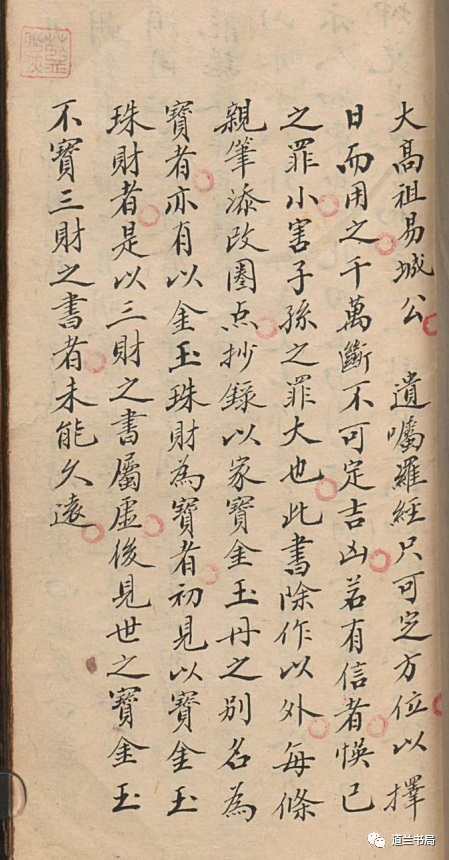 大高祖易城公　遺囑羅經只可定方位以擇
日而用之千萬斷不可定吉凶若有信者悞已
之罪小害子孫之罪大也此書除作以外每條
親筆添改圈点抄錄以家寶金玉丹之別名為
寶者亦有以金玉珠財為寶者初見以寶金玉
珠財者是以三財之書屬虛後見世之寶金玉
不寶三財之書者未能久遠
道兰书局